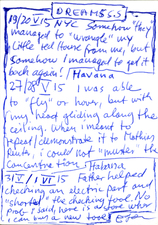 DREAMS S.S
19/20 V 15 NYC Somehow "they"
managed to "wrangle" my
little red House from me, but
somehow I managed to get it
back again! / Havana
27/28 V 15 I was able
to "fly" or hover, but with
my head gliding along the
ceiling. When I meant to
repeat/demonstrate it to
Ruth, I could not "muster" the
concentration. Habana
31 V / 1 VI 15 Father helped
checking an electric part and
"shorted" the checking tool. No
prob, I said, here is above where
I can buy a new tool!